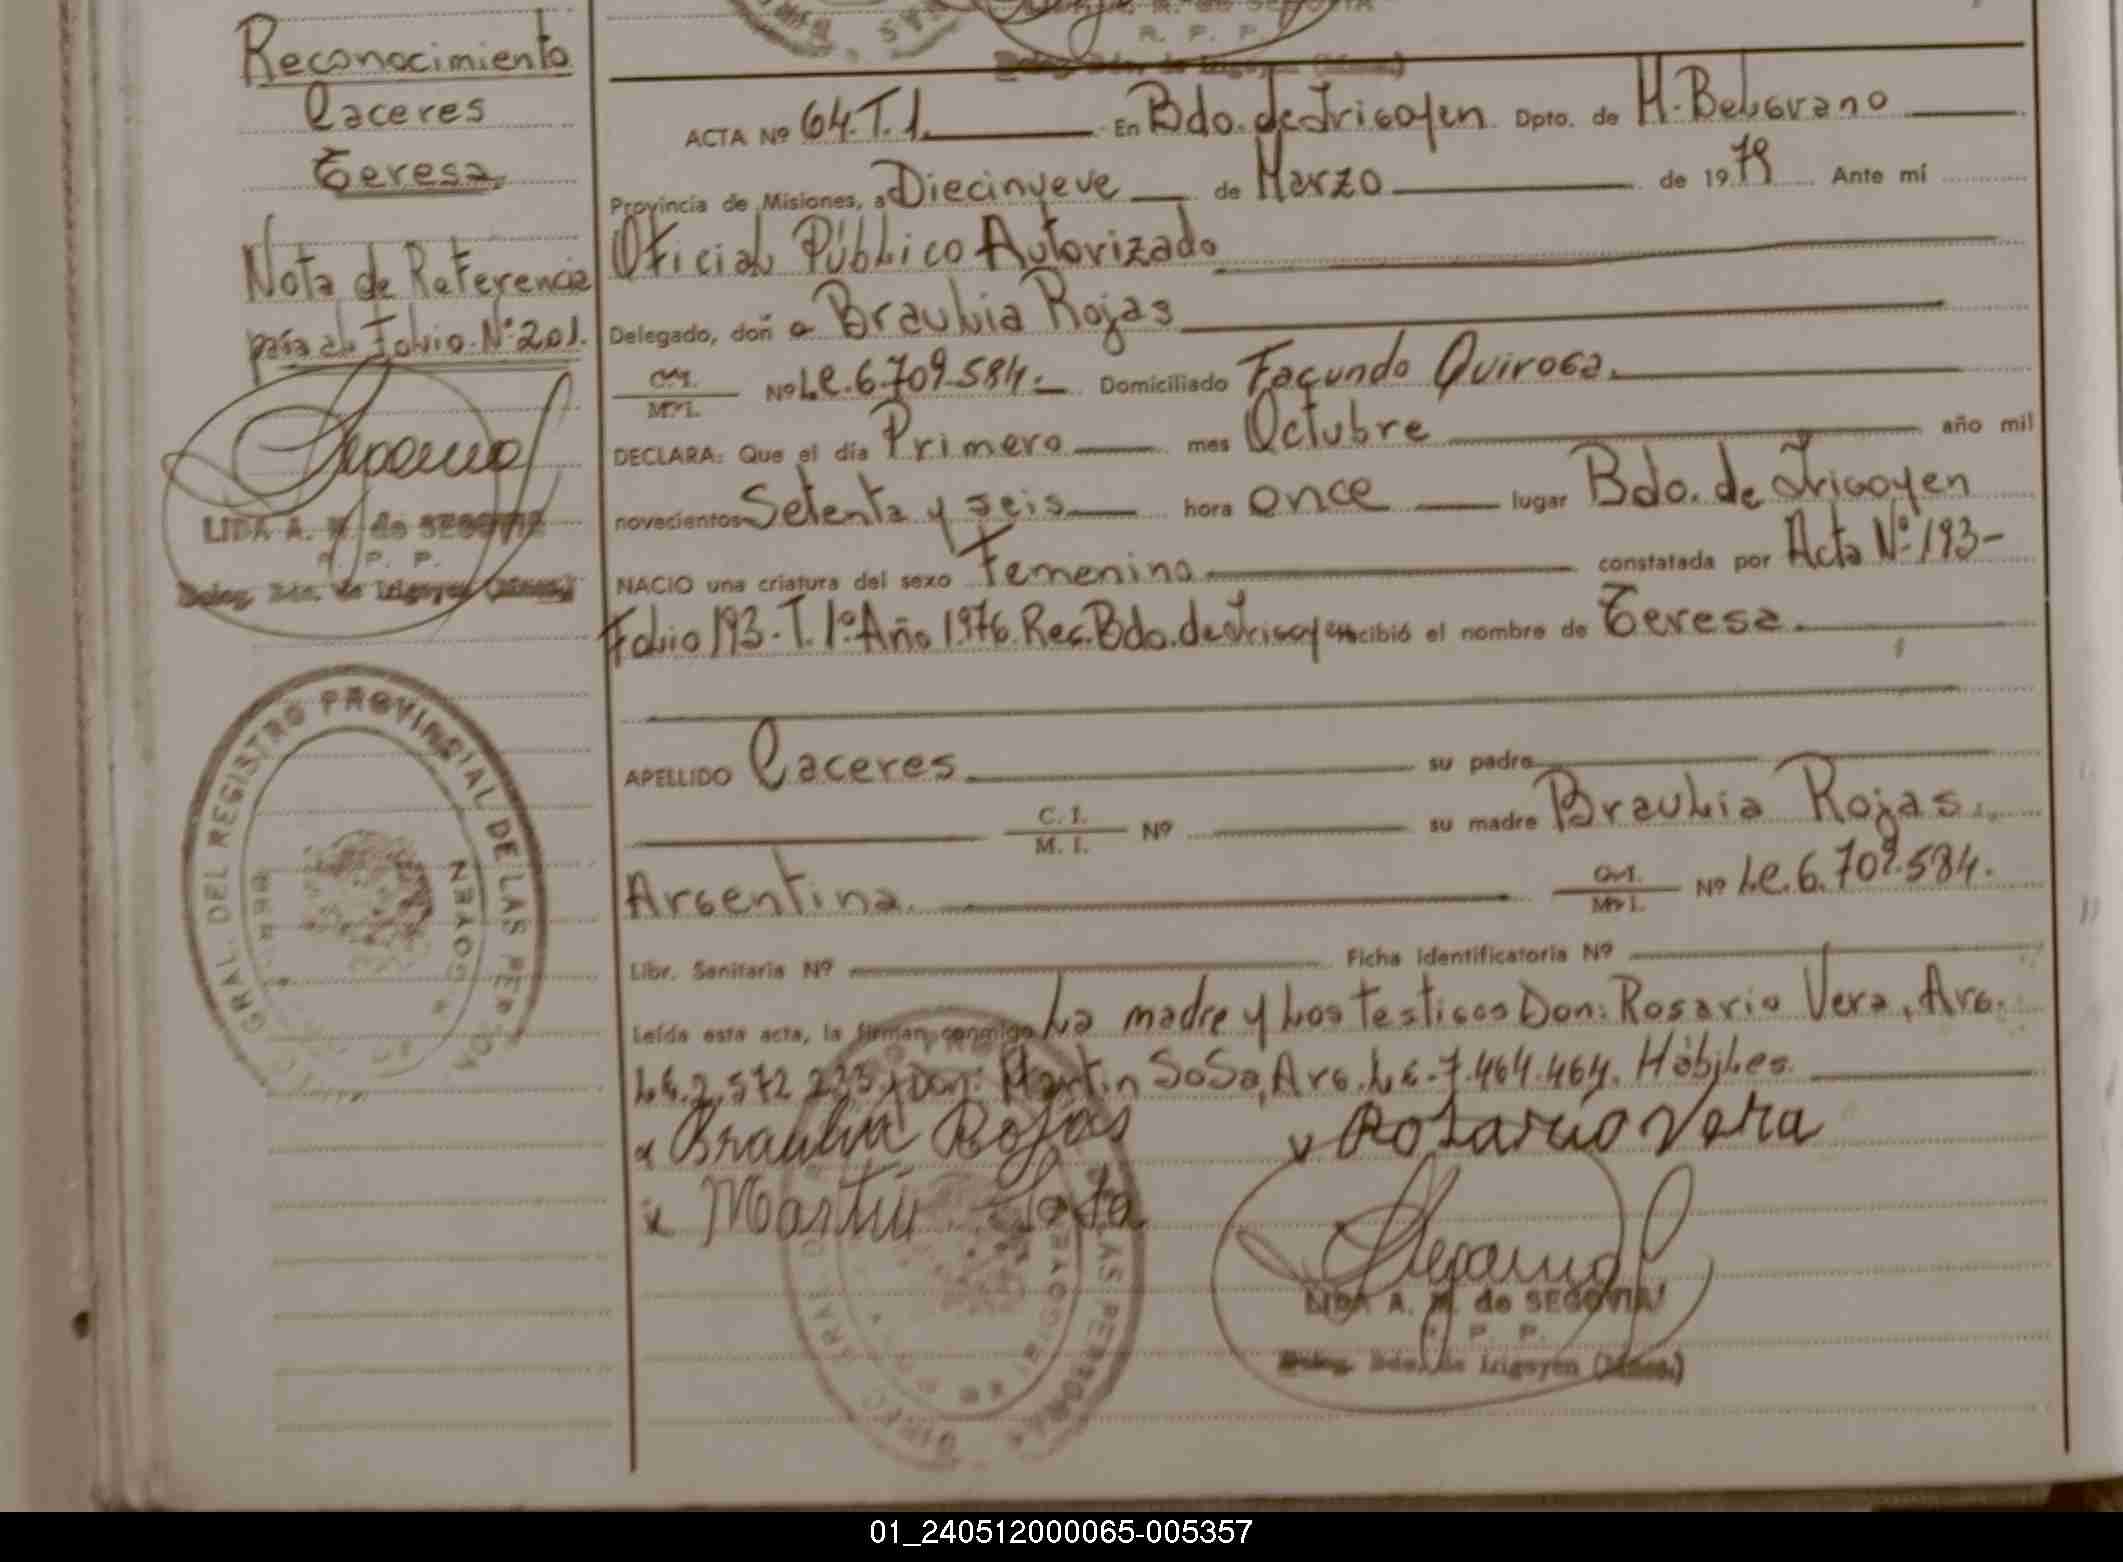 Reconocimiento
Caceres
Teresa
Nota de Referencia
pasa al Folio Nº 201.
LIDA A. M. de SEGOVIA
R. P. P.
Deleg. Bdo. de Irigoyen (Mnes.)
GRAL. DEL REGISTRO PROVINCIAL DE LAS PER
R. P. P.
Deleg. Bdo. de Irigoyen (Mnes.)
ACTA Nº 64.T.1. En Bdo. de Irigoyen Dpto. de M. Belgrano
Provincia de Misiones, a Diecinueve de Marzo de 1979 Ante mí
Oficial Público Autorizado
Delegado, doña Braulia Rojas
C.I. M.I. Nº L.C. 6.709.584.- Domiciliado Facundo Quiroga.
DECLARA: Que el día Primero mes Octubre año mil
novecientos Setenta y seis hora once lugar Bdo. de Irigoyen
NACIO una criatura del sexo Femenino constatada por Acta Nº 193-
Folio 193. T. 1º. Año 1976. Rec. Bdo. de Irigoyen recibió el nombre de Teresa.
APELLIDO Caceres su padre
C. I. M. I. Nº su madre Braulia Rojas.
Argentina. C.I. M.I. Nº L.C. 6.709.584.
Libr. Sanitaria Nº Ficha Identificatoria Nº
Leída esta acta, la firman conmigo La madre y Los testigos Don: Rosario Vera, Arg.
L.E. 2.572.233 y Don: Martin Sosa, Arg. L.E. 7.464.464. Hábiles.
x Braulia Rojas x Rosario Vera
x Martin Sosa
LIDA A. M. de SEGOVIA
R. P. P.
Deleg. Bdo. de Irigoyen (Mnes.)
01_240512000065-005357